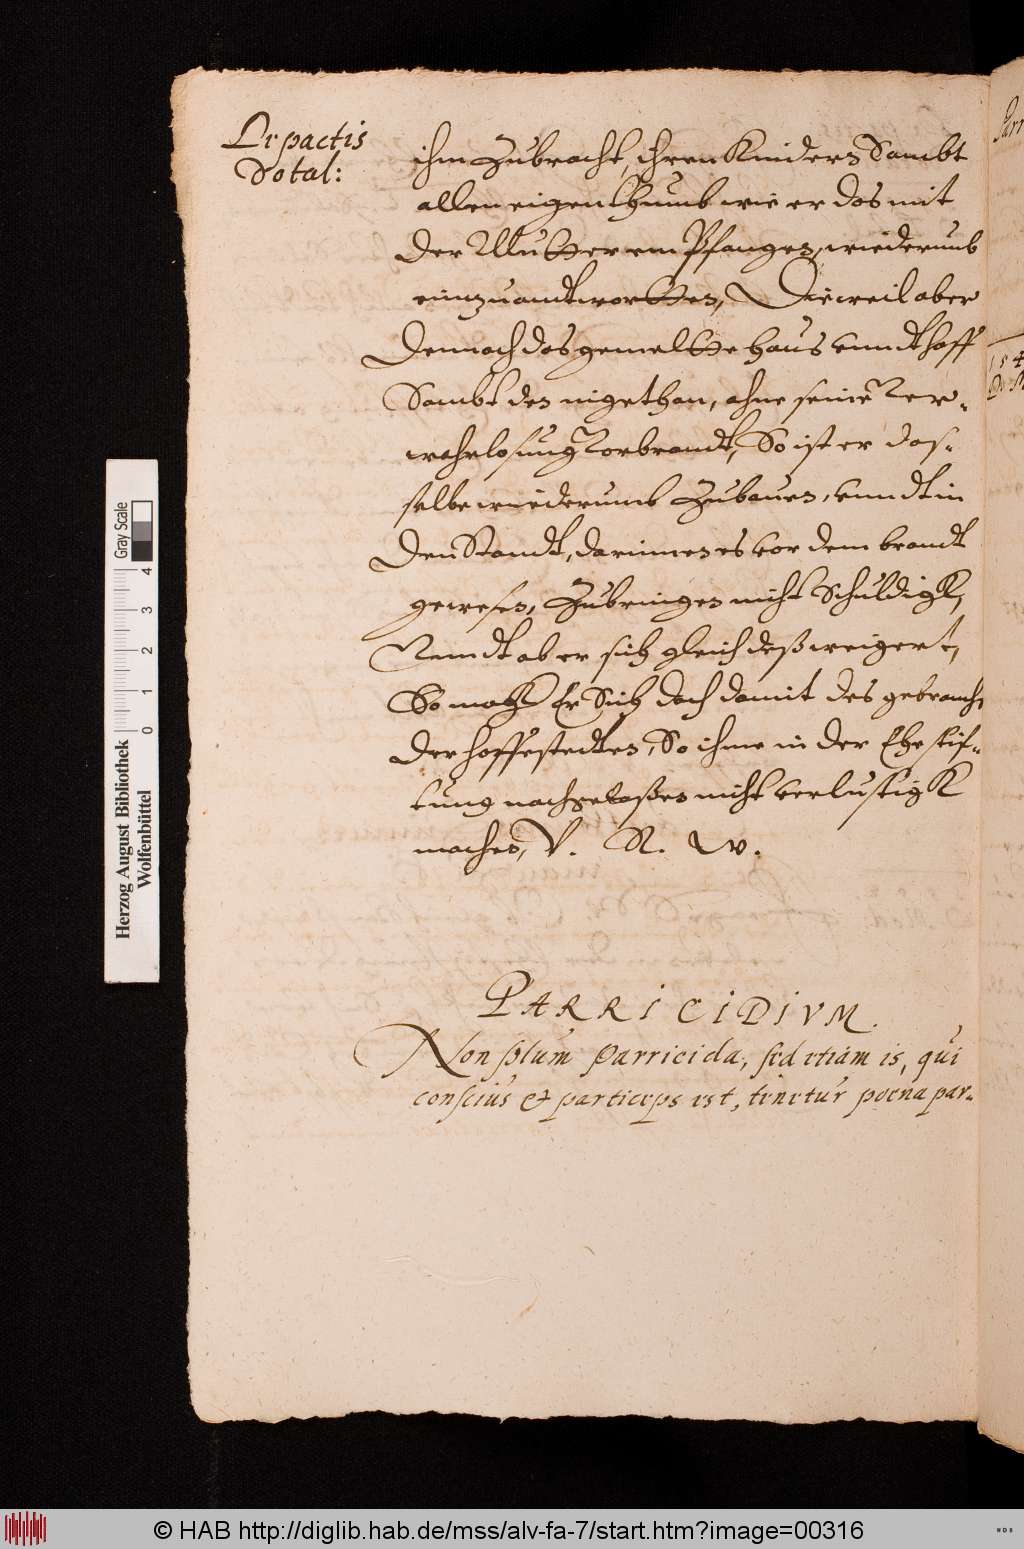 De pactis
Dotal:
ihm Zubracht, ihren Kindern Sambt
allen eigenthumb wie er das mit
der Mutter empfangen, wiederumb
einzuandtwortten, Dieweil aber
dennoch das gemeltte haus vnndt hoff
Sambt den eigethan, ahne seine Ver-
wahrlosung Vorbrandt, So ist er das-
selbe wiederumb Zubauen, vnndt in
den Standt, darinnen es vor dem brandt
gewesen, Zubringen nicht Schuldigk,
Vnndt ob er sich gleich deß weigert,
So magk Er Sich doch damit des gebrauchs
der hoffestedten, So ihme in der Ehestif-
tung nachgelaßen nicht verlustigk
machen, V. R. W.
PARRICIDIVM.
Non solum parricida, sed etiam is, qui
conscius et particeps est, tenetur poena par-
Parr
154
Gray Scale
4 3 2 1 0
Herzog August Bibliothek
Wolfenbüttel
© HAB http://diglib.hab.de/mss/alv-fa-7/start.htm?image=00316